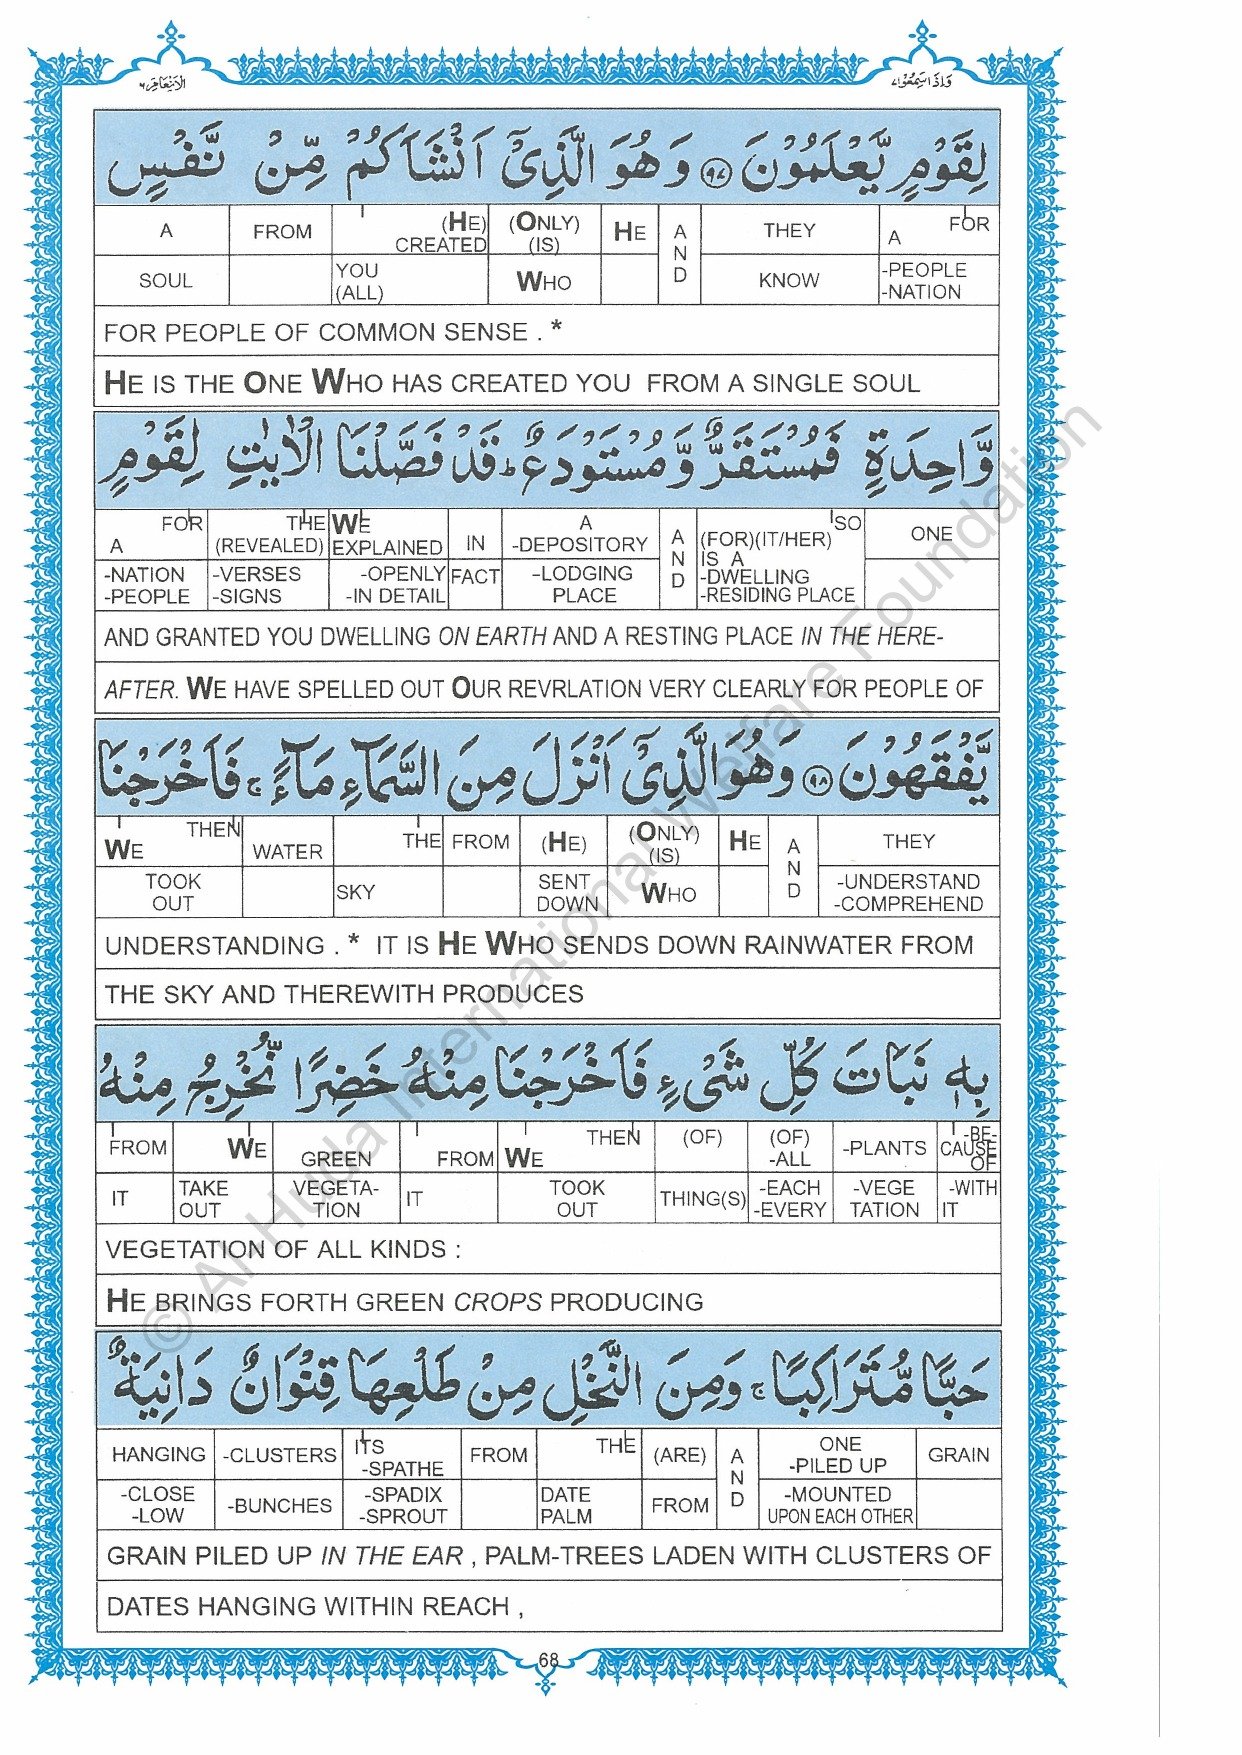 الانعام ٦
وَاِذَا سَمِعُوْا ٧
لِقَوْمٍ يَّعْلَمُوْنَ ﴿۹۷﴾ وَهُوَ الَّذِیْٓ اَنْشَاَكُمْ مِّنْ نَّفْسٍ
A FROM (HE) CREATED (ONLY) (IS) HE AND THEY A FOR
SOUL YOU (ALL) WHO KNOW -PEOPLE -NATION
FOR PEOPLE OF COMMON SENSE . *
HE IS THE ONE WHO HAS CREATED YOU FROM A SINGLE SOUL
وَّاحِدَةٍ فَمُسْتَقَرٌّ وَّمُسْتَوْدَعٌ ؕ قَدْ فَصَّلْنَا الْاٰيٰتِ لِقَوْمٍ
A FOR THE (REVEALED) WE EXPLAINED IN A -DEPOSITORY AND (FOR)(IT/HER) SO IS A ONE
-NATION -PEOPLE -VERSES -SIGNS -OPENLY -IN DETAIL FACT -LODGING PLACE -DWELLING -RESIDING PLACE
AND GRANTED YOU DWELLING ON EARTH AND A RESTING PLACE IN THE HERE-
AFTER. WE HAVE SPELLED OUT OUR REVRLATION VERY CLEARLY FOR PEOPLE OF
يَّفْقَهُوْنَ ﴿۹۸﴾ وَهُوَ الَّذِیْٓ اَنْزَلَ مِنَ السَّمَآءِ مَآءً ۚ فَاَخْرَجْنَا
WE THEN WATER THE FROM (HE) (ONLY) (IS) HE AND THEY
TOOK OUT SKY SENT DOWN WHO -UNDERSTAND -COMPREHEND
UNDERSTANDING . * IT IS HE WHO SENDS DOWN RAINWATER FROM
THE SKY AND THEREWITH PRODUCES
بِهٖ نَبَاتَ كُلِّ شَیْءٍ فَاَخْرَجْنَا مِنْهُ خَضِرًا نُّخْرِجُ مِنْهُ
FROM WE GREEN FROM WE THEN (OF) (OF) -ALL -PLANTS -BE-CAUSE OF
IT TAKE OUT VEGETA-TION IT TOOK OUT THING(S) -EACH -EVERY -VEGE TATION -WITH IT
VEGETATION OF ALL KINDS :
HE BRINGS FORTH GREEN CROPS PRODUCING
حَبًّا مُّتَرَاكِبًا ۚ وَمِنَ النَّخْلِ مِنْ طَلْعِهَا قِنْوَانٌ دَانِيَةٌ
HANGING -CLUSTERS ITS -SPATHE FROM THE (ARE) AND ONE -PILED UP GRAIN
-CLOSE -LOW -BUNCHES -SPADIX -SPROUT DATE PALM FROM -MOUNTED UPON EACH OTHER
GRAIN PILED UP IN THE EAR , PALM-TREES LADEN WITH CLUSTERS OF
DATES HANGING WITHIN REACH ,
68
© Al-Huda International Welfare Foundation